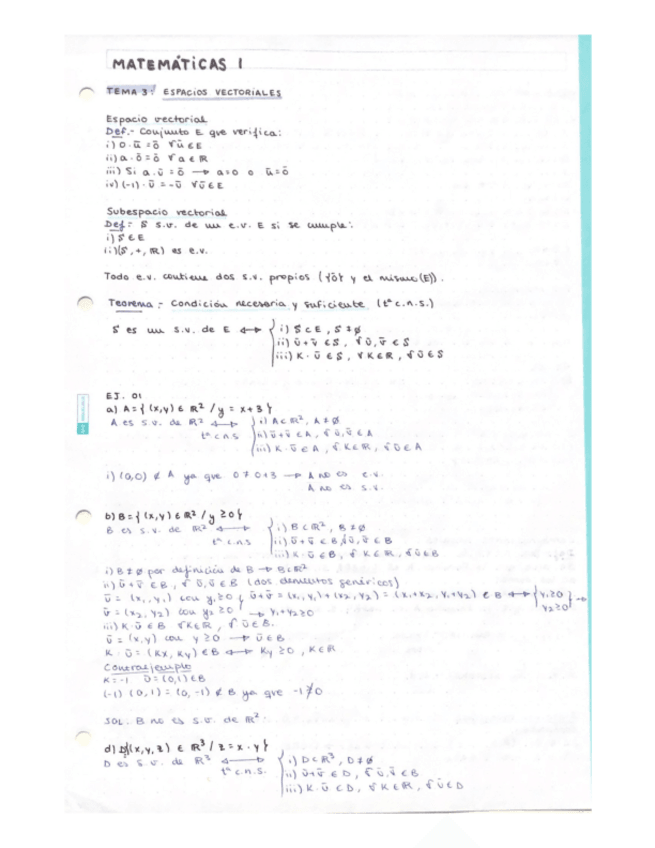 MATEMÁTICAS 1
TEMA 3: ESPACIOS VECTORIALES
Espacio vectorial
Def.- Conjunto E que verifica:
i) 0·ū = ō ∀ū∈E
ii) a·ō = ō ∀a∈ℝ
iii) Si a·ū = ō → a=0 o ū=ō
iv) (-1)·ū = -ū ∀ū∈E
Subespacio vectorial
Def: S s.v. de un e.v. E si se cumple:
i) S∈E
ii) (S,+,ℝ) es e.v.
Todo e.v. contiene dos s.v. propios ({ō} y el mismo (E)).
Teorema.- Condición necesaria y suficiente (tª c.n.s.)
S es un s.v. de E ↔ { i) S⊂E, S≠∅
ii) ū+v̄ ∈S, ∀ū,v̄ ∈S
iii) K·ū ∈S, ∀K∈ℝ, ∀ū∈S
EJ. 01
a) A={(x,y) ∈ ℝ² / y = x+3}
A es s.v. de ℝ² ↔ { i) A⊂ℝ², A≠∅
tª c.n.s ii) ū+v̄ ∈A, ∀ū,v̄∈A
iii) K·ū∈A, ∀K∈ℝ, ∀ū∈A
i) (0,0) ∉ A ya que 0≠0+3 → A no es e.v.
A no es s.v.
b) B={(x,y)∈ℝ² / y≥0}
B es s.v. de ℝ² ↔ { i) B⊂ℝ², B≠∅
tª c.n.s ii) ū+v̄ ∈B, ∀ū,v̄ ∈B
iii) K·ū ∈B, ∀ K∈ℝ, ∀ū∈B
i) B≠∅ por definición de B → B⊂ℝ²
ii) ū+v̄ ∈B, ∀ ū,v̄∈B (dos elementos genéricos)
ū = (x₁,y₁) con y₁≥0 } ū+v̄ = (x₁,y₁)+(x₂,y₂) = (x₁+x₂, y₁+y₂) ∈ B ↔ { y₁≥0
v̄ = (x₂,y₂) con y₂≥0 → y₁+y₂≥0 y₂≥0 } →
iii) K·ū∈B ∀K∈ℝ, ∀ū∈B.
ū = (x,y) con y≥0 → ū∈B
K·ū = (Kx, Ky) ∈B ↔ Ky≥0, K∈ℝ
Contraejemplo
K=-1 ū=(0,1)∈B
(-1)(0,1) = (0,-1) ∉ B ya que -1≱0
SOL. B no es s.v. de ℝ².
d) D{(x,y,z) ∈ ℝ³ / z=x·y}
D es s.v. de ℝ³ ↔ { i) D⊂ℝ³, D≠∅
tª c.n.s. ii) ū+v̄ ∈D, ∀ū,v̄∈B
iii) K·ū ∈D, ∀K∈ℝ, ∀ū∈D